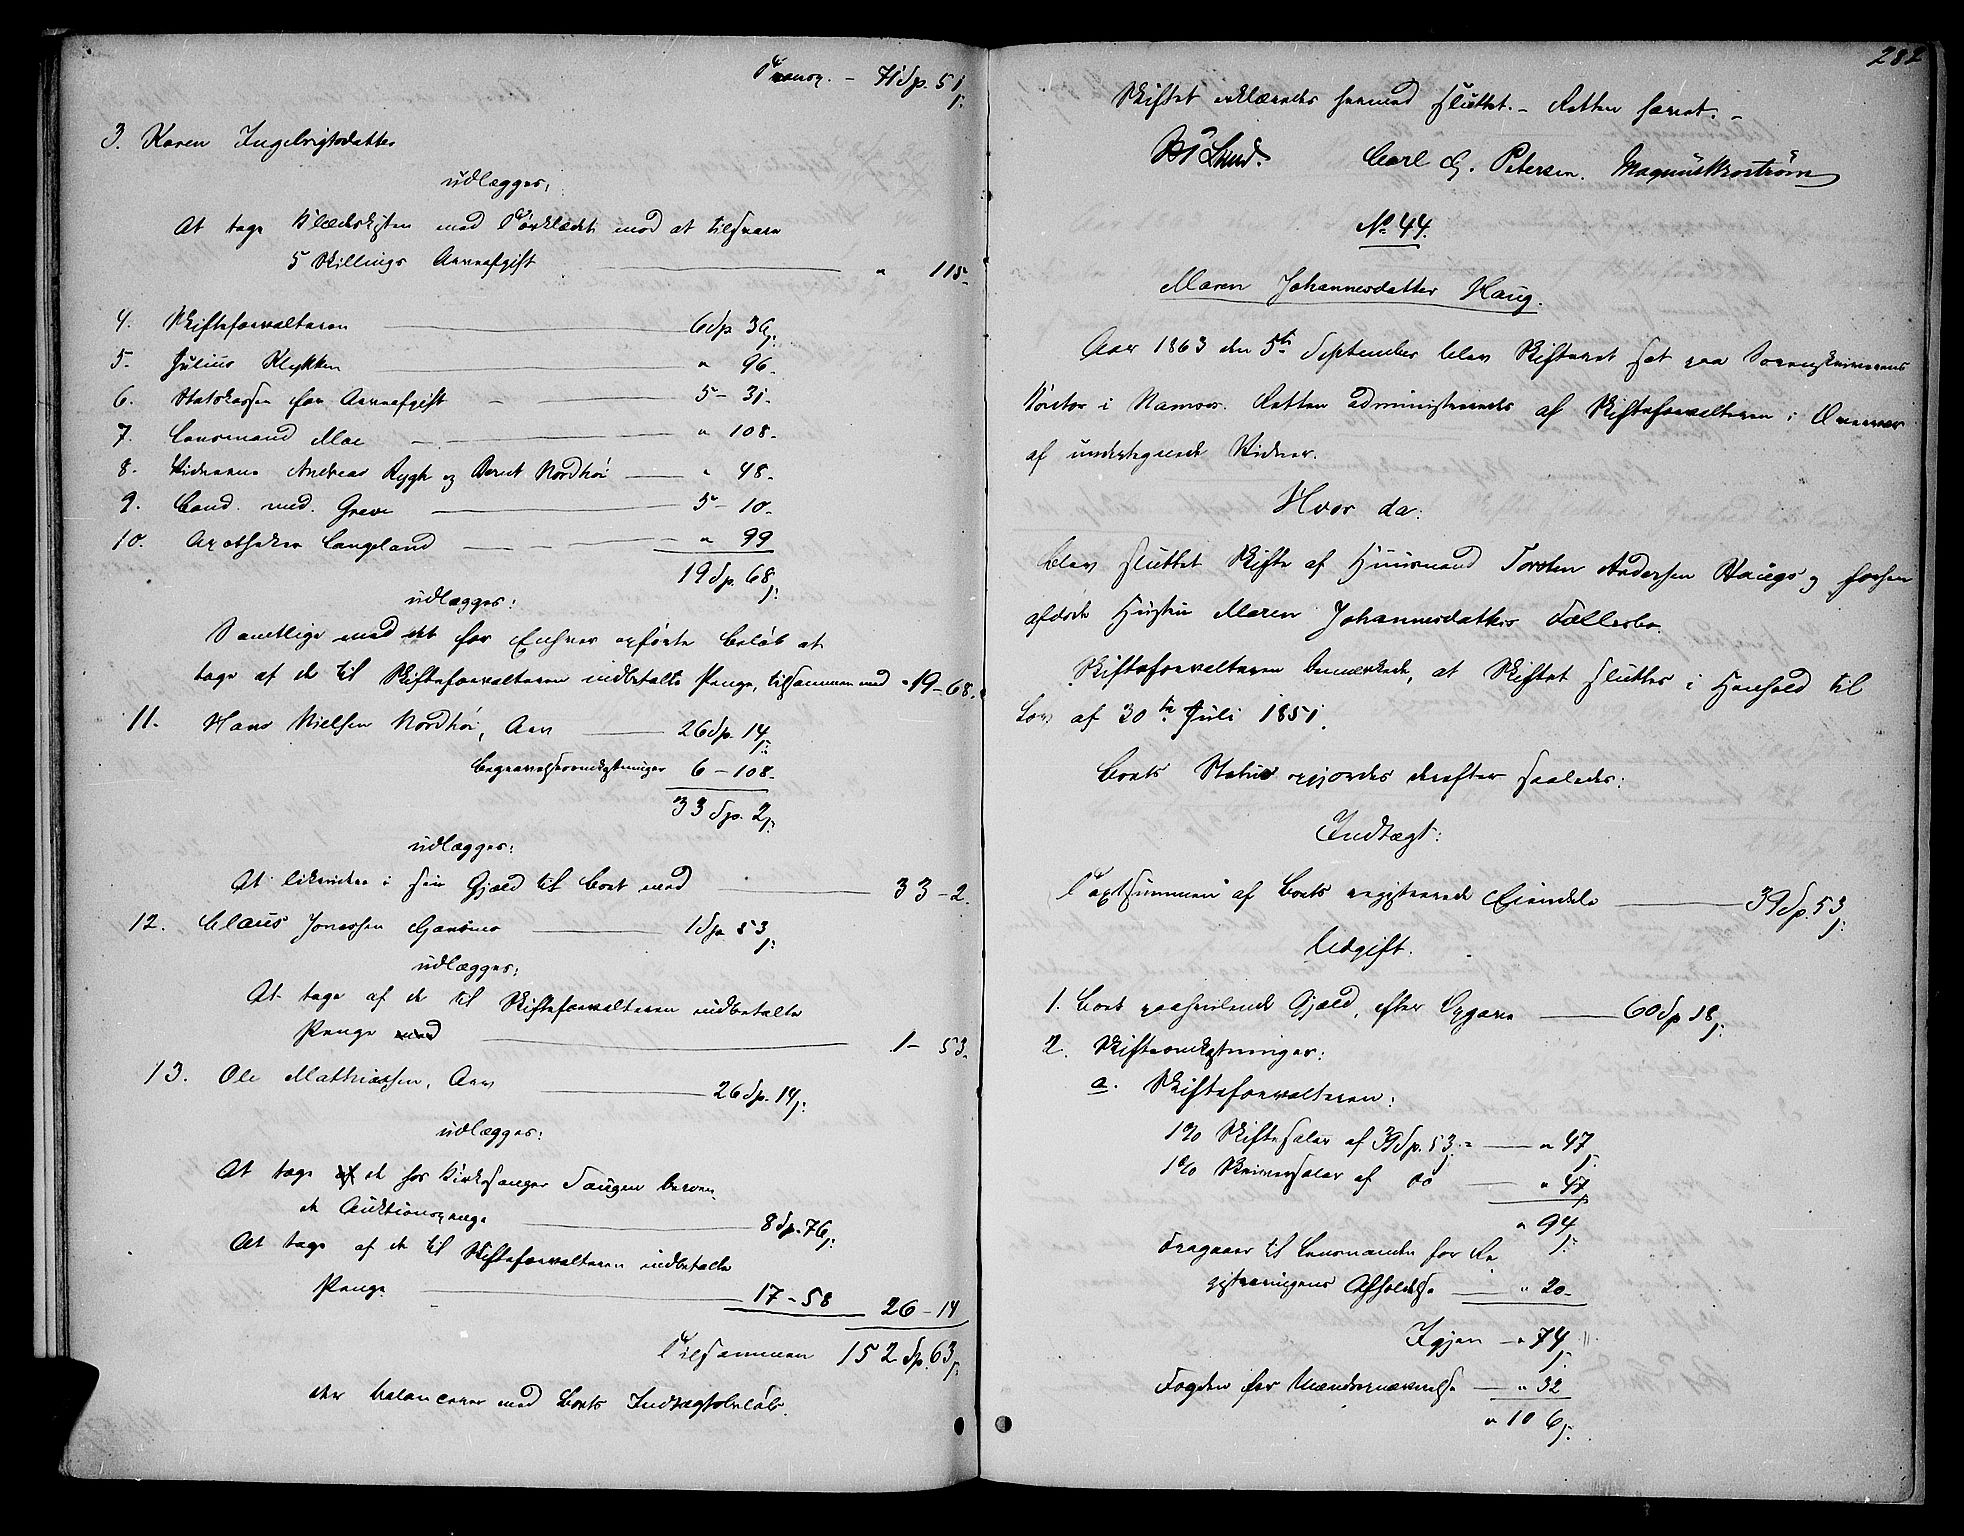 Transp. - 71 Sp. 51 ß:
3. Karen Ingebrigtsdatter
udlægges,
At tage Klædeskisten med Tørklædet mod at tilsvare
5 Skillings Arveafgift " 115-
4. Skifteforvalteren 6 Sp 36 ß:
5. Julius Klykken " 96-
6. Statskassen for Arveafgift 5 - 31-
7. Lensmand Moe " 108-
8. Vidnerne Andreas Rygh og Bernt Nordhøi " 48-
9. Cand. med. Greve 5 - 10-
10. Apotheker Langeland " 99
19 Sp. 68 ß:
udlægges:
Samtlige med det for Enhver opførte Beløb at
tage af de til Skifteforvalteren indbetalte Penge, tilsammen med - 19 - 68.
11. Hans Nielsen Nordhøi, Arv 26 Sp. 14 ß:
Begravelsesomkostninger 6 - 108-
33 Sp. 2 ß:
udlægges:
At likvidere i sin Gjæld til Boet med 33 - 2.
12. Claus Jonassen 1 Sp. 53 ß:
udlægges:
At tage af de til Skifteforvalteren indbetalte
Penge med 1 - 53.
13. Ole Mathiassen, Arv 26 Sp. 14 ß:
udlægges:
At tage af de hos Kirkesanger Saugen beroen
de Auktionspenge 8 Sp. 76 ß:
At tage af de til Skifteforvalteren indbetalte
Penge 17 - 58 26 - 14
Tilsammen 152 Sp. 63 ß:
der balancerer med Boets Indtægtsbeløb.
282
Skiftet erklæredes hermed sluttet. - Retten hævet. -
Lund. Carl G. Petersen.
No 44.
Maren Johannesdatter Haug.
Aar 1863 den 5te September blev Skifteret sat paa Sorenskriverens
Kontor i Namsos. Retten administreredes af Skifteforvalteren i Overvær
af undertegnede Vidner.
Hvor da:
blev sluttet Skifte af Huusmand Torsten Andersen Haugs og forhen
afdøde Hustru Maren Johannesdatters Fællesbo.
Skifteforvalteren bemærkede, at Skiftet sluttes i Henhold til
Lov af 30te Juli 1851.
Boets Status opgjordes derefter saaledes:
Indtægt:
Taxtsummen af Boets registrerede Eiendele 39 Sp. 53 ß:
Udgift.
1. Boet paahvilende Gjæld, efter Opgave 60 Sp 18 ß:
2. Skifteomkostninger:
a. Skifteforvalteren:
1% Skiftesalær af 39 Sp. 53 ß: - " 47 ß:
1% Skriversalær af do " 47
" 94 ß:
Fragaaer til Lensmanden for Re
gistreringens Afholdelse " 20-
Igjen - " 74 ß:
Fogden for Mændsopnævnelse " 32
" 106 ß: